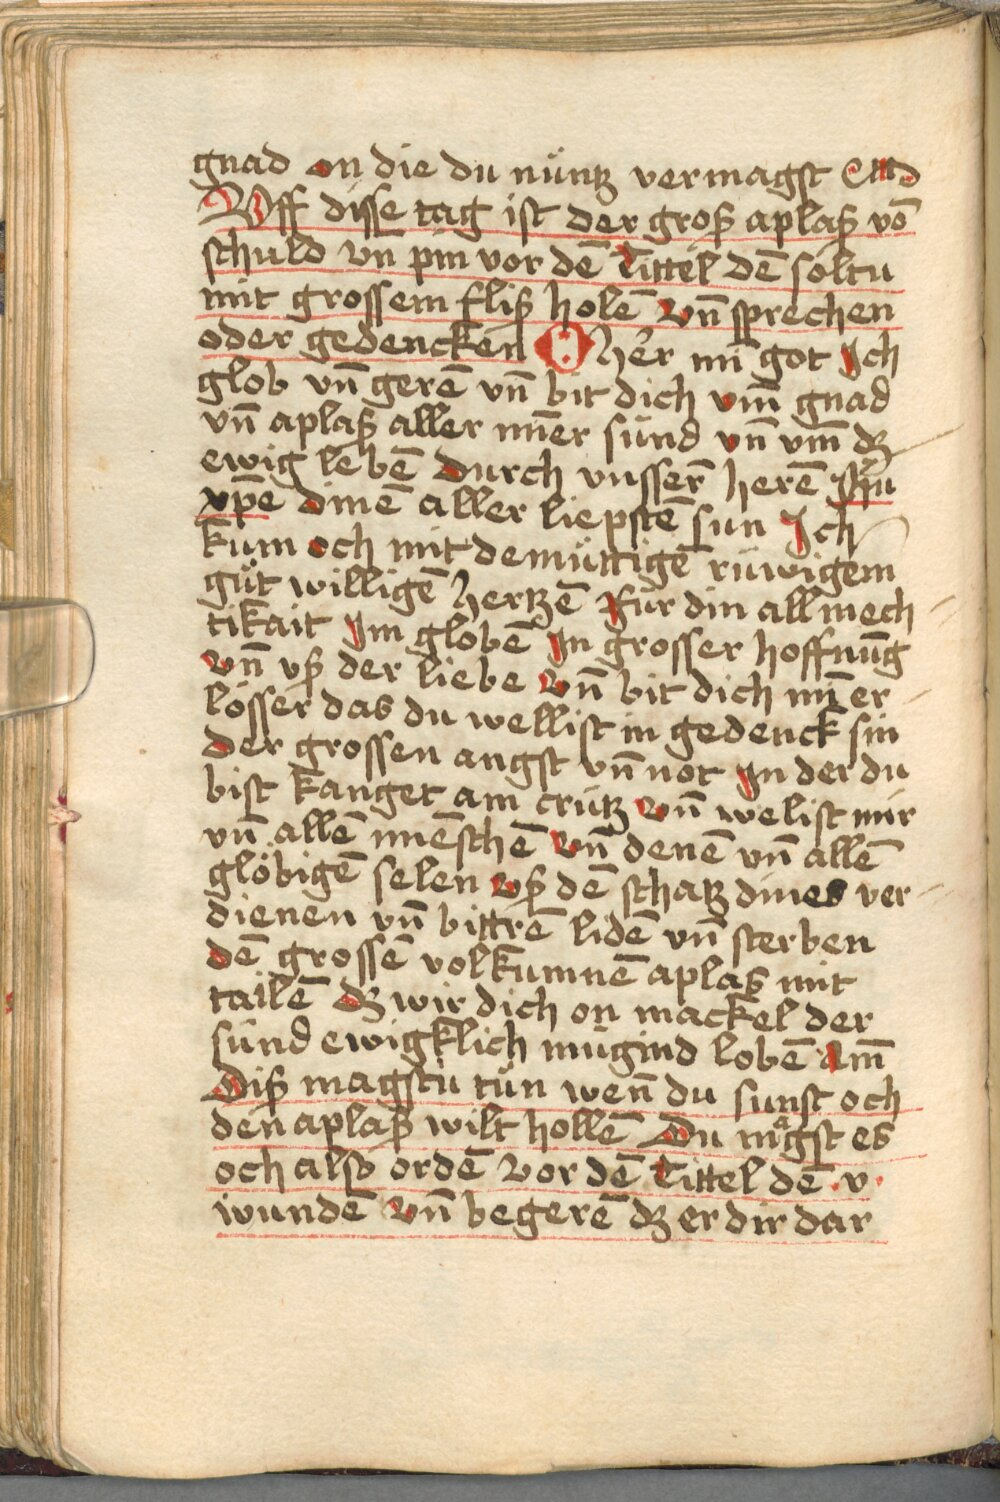 gnad on die du nüntz vermagst End
Vff disse tag ist der groß aplaß vō
schuld vn̄ pin vor dē Tittel dē soltu
mit grossem fliß holē vn̄ sprechen
oder gedencken O her mī got Ich
glob vn̄ gerē vn̄ bit dich vm̄ gnad
vn̄ aplaß aller mīer sünd vn̄ vm̄ dz
ewig lebē durch vnsserē herē Jhū
xp̄e dinē aller liepstē sun Ich
kum och mit demüttigē rüwigem
gůt willigē hertzē Für din allmech
tikait Im globē In grosser hoffnūg
vn̄ vß der liebe vn̄ bit dich mī er
lösser das du wellist in gedenck sin
der grossen angst vn̄ not In der du
bist kanget am crütz vn̄ welist mir
vn̄ allē mēschē vn̄ denē vn̄ allē
glöbigē selen vß dē schatz dines ver
dienen vn̄ bittrē lidē vn̄ sterben
dē grossē volkumnē aplas mit
tailē dz wir dich on mackel der
sünd ewigklich mügind lobē Am̄
Diß magstu tůn wen̄ du sunst och
den aplaß wilt hollē Du magst es
och also ordē vor dē Tittel dē .v.
wundē vn̄ begerē dz er dir dar